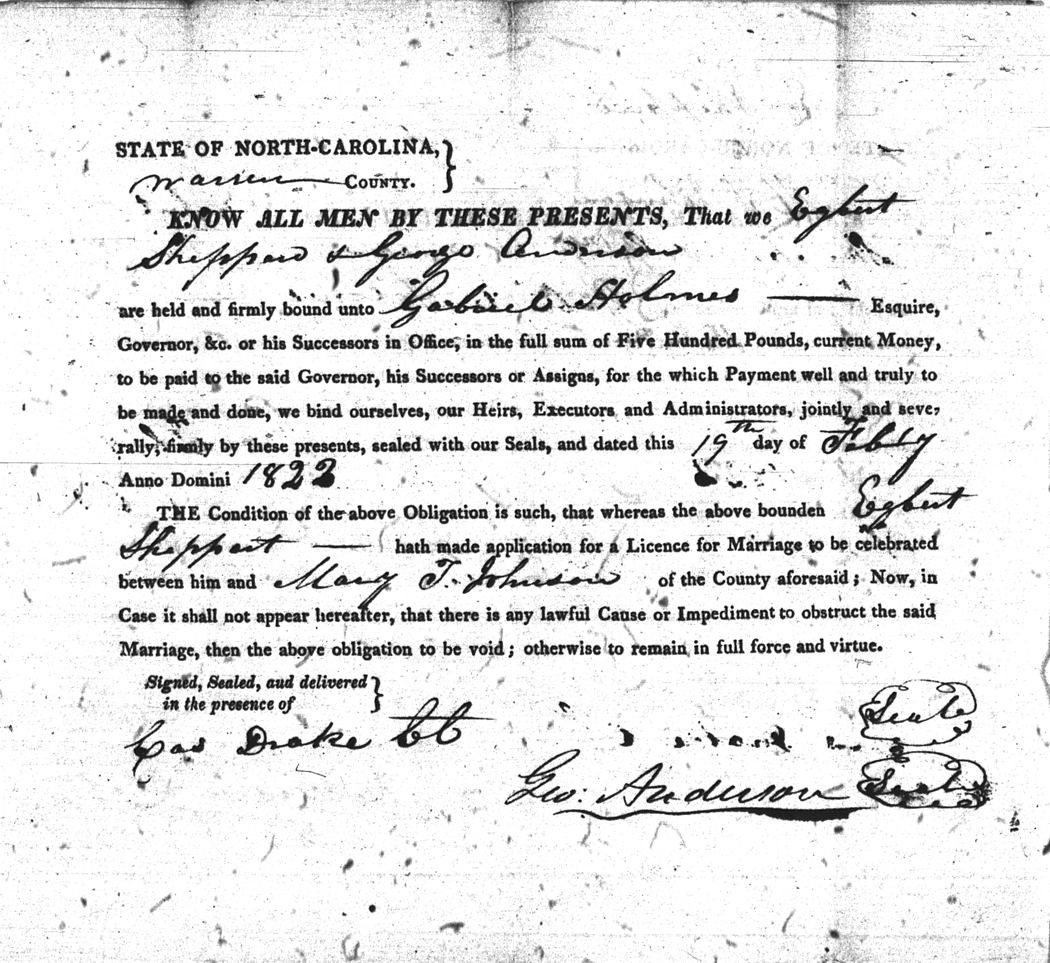 STATE OF NORTH-CAROLINA, }
Warren COUNTY.
KNOW ALL MEN BY THESE PRESENTS, That we Egbert
Sheppard & George Anderson
are held and firmly bound unto Gabriel Holmes Esquire,
Governor, &c. or his Successors in Office, in the full sum of Five Hundred Pounds, current Money,
to be paid to the said Governor, his Successors or Assigns, for the which Payment well and truly to
be made and done, we bind ourselves, our Heirs, Executors and Administrators, jointly and seve-
rally, firmly by these presents, sealed with our Seals, and dated this 19th day of Feby
Anno Domini 1822
THE Condition of the above Obligation is such, that whereas the above bounden Egbert
Sheppart — hath made application for a Licence for Marriage to be celebrated
between him and Mary T. Johnson of the County aforesaid; Now, in
Case it shall not appear hereafter, that there is any lawful Cause or Impediment to obstruct the said
Marriage, then the above obligation to be void; otherwise to remain in full force and virtue.
Signed, Sealed, aud delivered }
in the presence of
Cas Drake CC
Seal
Geo: Anderson Seal